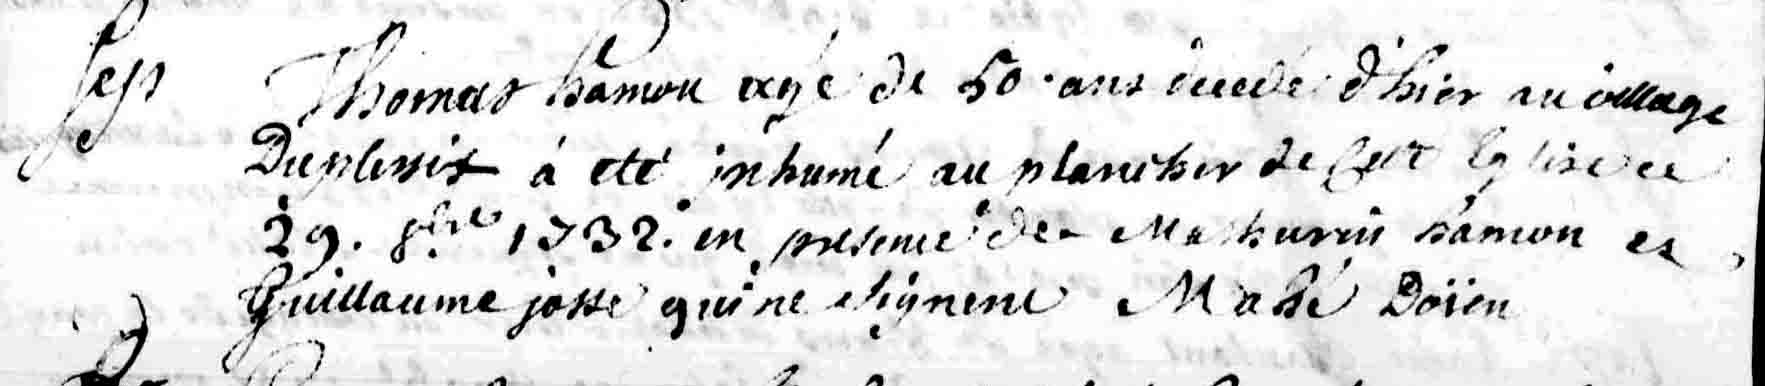 Sep Thomas hamon agé de 50 ans decedé d'hier au village
Duplessix à eté inhumé au plancher de cette Eglise ce
29. 8bre 1732. en presence de Mathurin hamon et
Guillaume josse qui ne signent Mahé Doïen